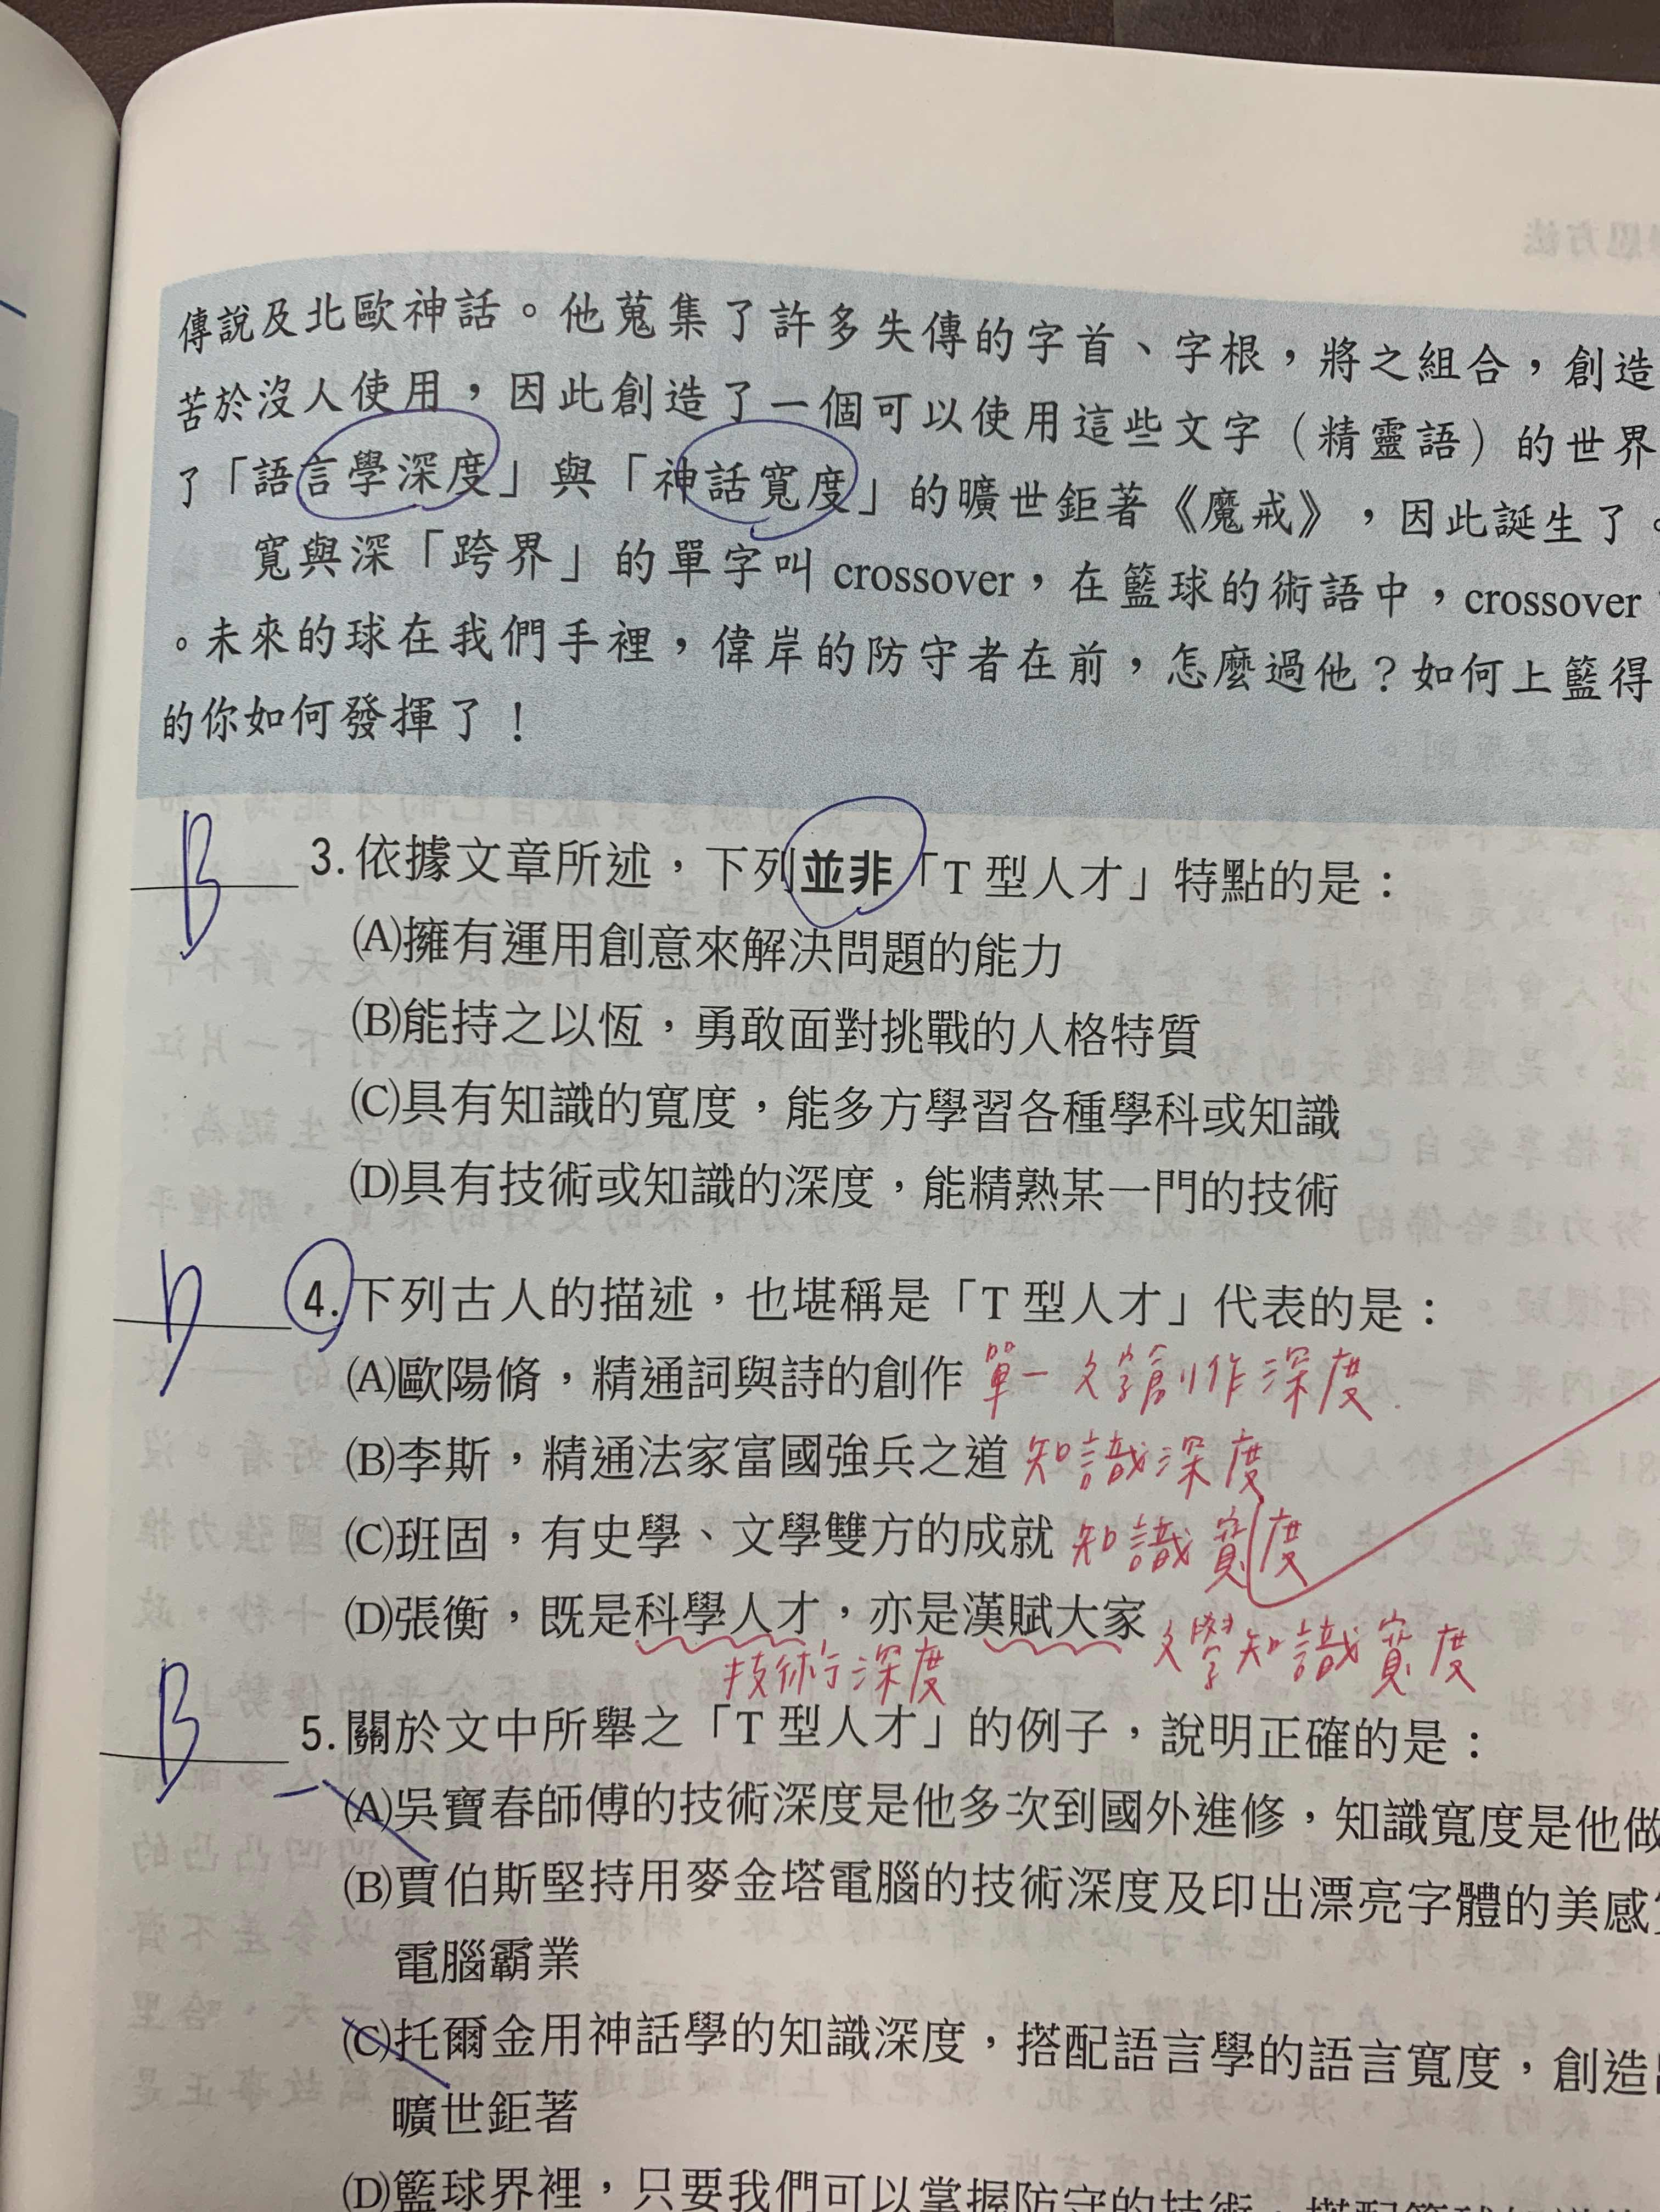 傳說及北歐神話。他蒐集了許多失傳的字首、字根，將之組合，創造
苦於沒人使用，因此創造了一個可以使用這些文字（精靈語）的世界
了「語言學深度」與「神話寬度」的曠世鉅著《魔戒》，因此誕生了。
寬與深「跨界」的單字叫 crossover，在籃球的術語中，crossover
。未來的球在我們手裡，偉岸的防守者在前，怎麼過他？如何上籃得
的你如何發揮了！
B 3. 依據文章所述，下列並非「T 型人才」特點的是：
(A)擁有運用創意來解決問題的能力
(B)能持之以恆，勇敢面對挑戰的人格特質
(C)具有知識的寬度，能多方學習各種學科或知識
(D)具有技術或知識的深度，能精熟某一門的技術
D 4. 下列古人的描述，也堪稱是「T 型人才」代表的是：
(A)歐陽脩，精通詞與詩的創作 單一文學創作深度
(B)李斯，精通法家富國強兵之道 知識深度
(C)班固，有史學、文學雙方的成就 知識寬度
(D)張衡，既是科學人才，亦是漢賦大家 文學知識寬度
技術深度
B 5. 關於文中所舉之「T 型人才」的例子，說明正確的是：
(A)吳寶春師傅的技術深度是他多次到國外進修，知識寬度是他做
(B)賈伯斯堅持用麥金塔電腦的技術深度及印出漂亮字體的美感
電腦霸業
(C)托爾金用神話學的知識深度，搭配語言學的語言寬度，創造
曠世鉅著
(D)籃球界裡，只要我們可以掌握防守的技術，搭配籃球知識